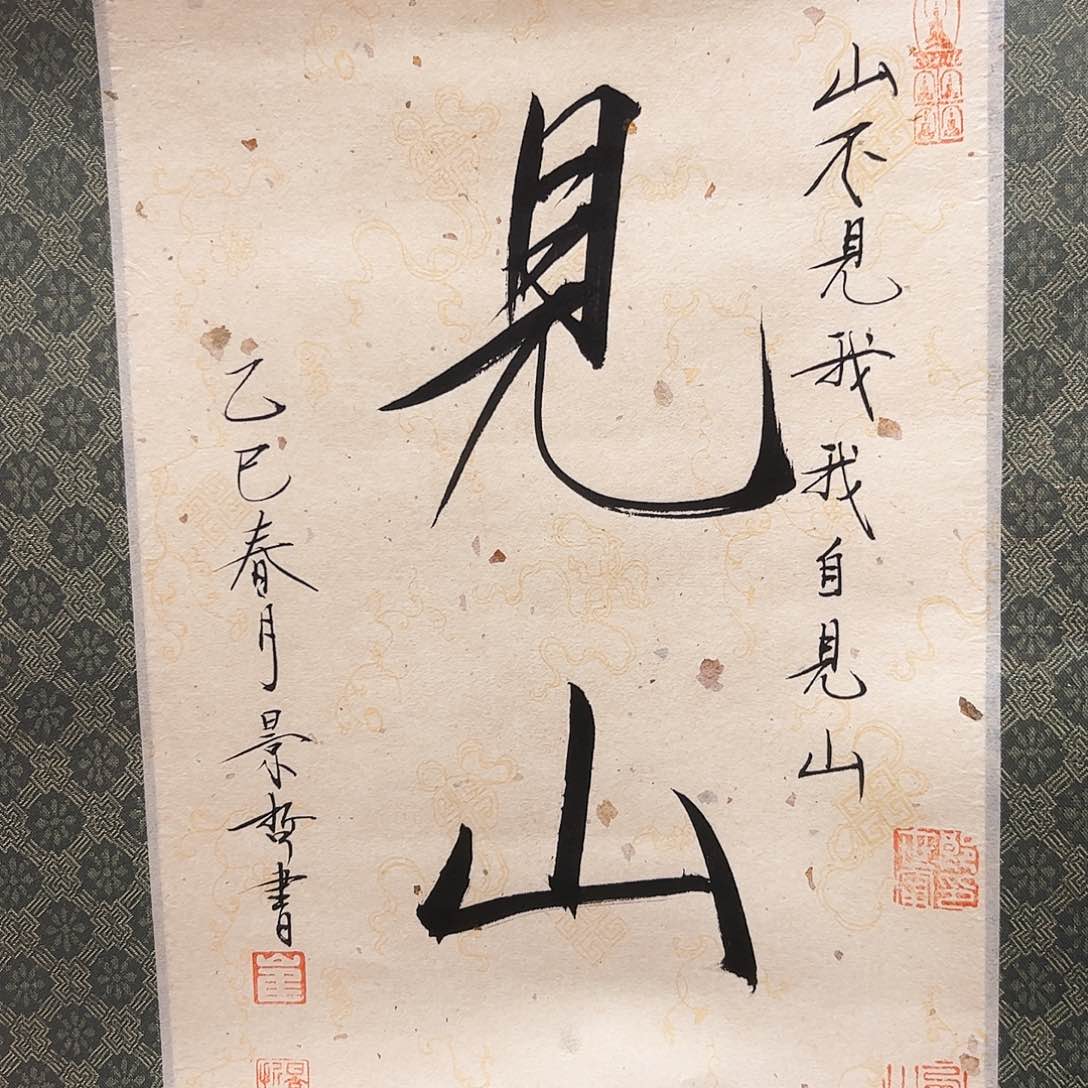 山不見我我自見山
見山
乙巳春月景哲書